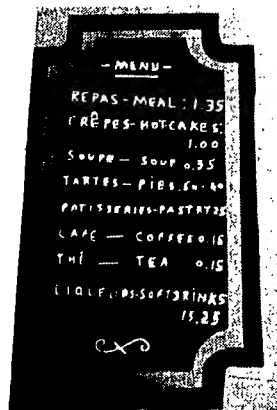 - MENU -
REPAS - MEAL : 1.35
CRÊPES-HOTCAKES:
1.00
SOUPE — SOUP 0.35
TARTES - PIES .50-40
PATISSERIES-PASTRY 25
CAFE — COFFEE 0.15
THÉ — TEA 0.15
LIQUEURS-SOFT DRINKS
15.25